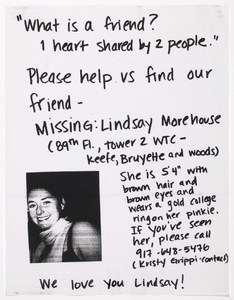 "What is a friend?
1 heart shared by 2 people."
Please help us find our
friend -
Missing: Lindsay Morehouse
(89th Fl., tower 2 WTC -
Keefe, Bruyette and Woods)
She is 5'4" with
brown hair and
brown eyes and
wears a gold college
ring on her pinkie.
If you've seen
her, please call
917-648-5476
(Kristy Grippi-contact)
We love you Lindsay!